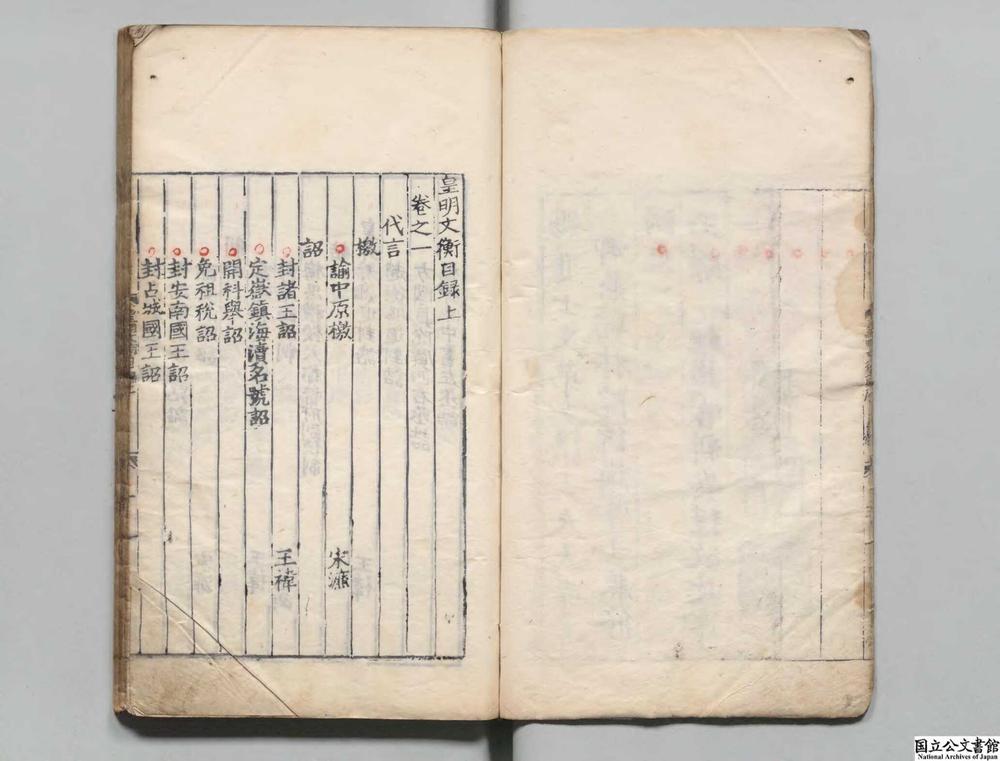 皇明文衡目録上
卷之一
代言
檄
諭中原檄 宋濂
詔
封諸王詔 王褘
定嶽鎮海瀆名號詔
開科舉詔
免租稅詔
封安南國王詔
封占城國王詔
国立公文書館
National Archives of Japan